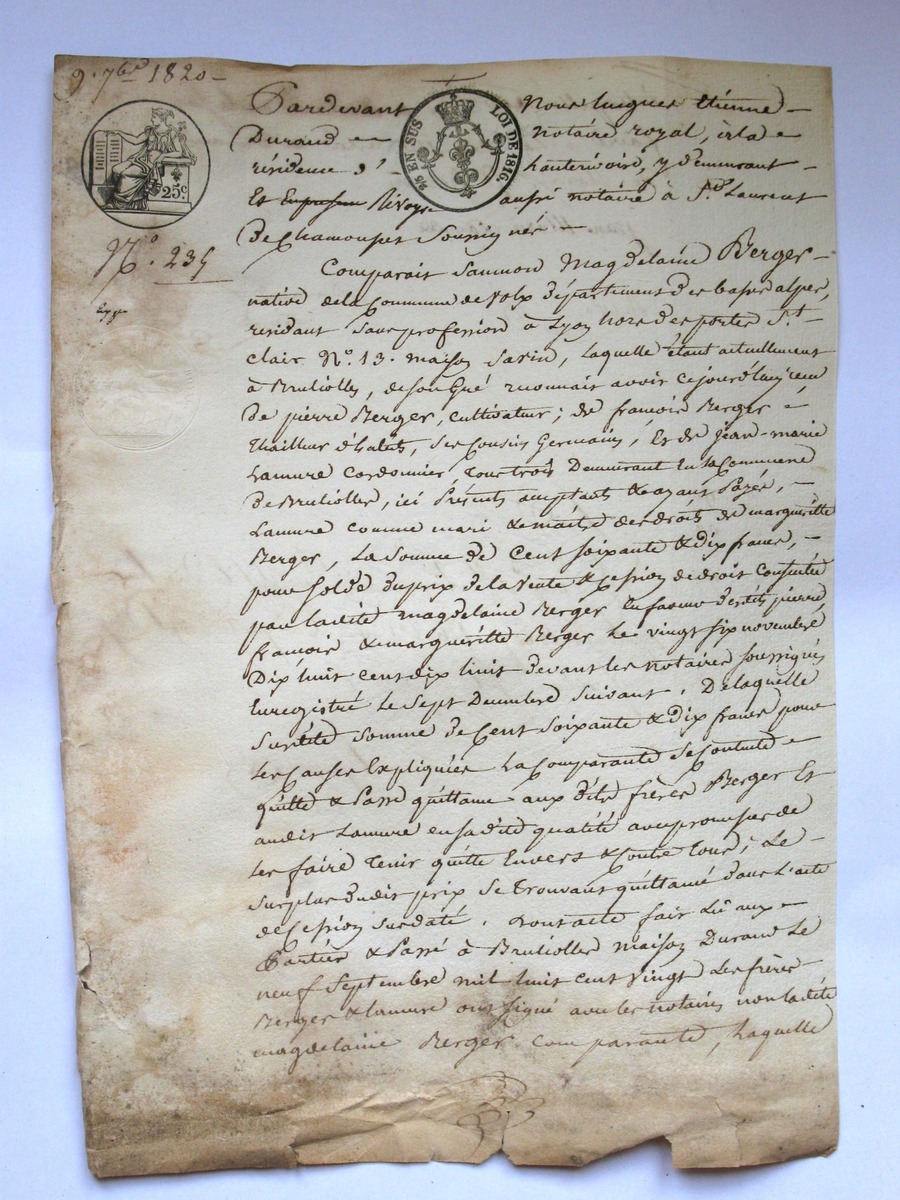 9. 7bre 1820 -
25c
25 EN SUS
LOI DE 1816.
N.o 235
Pardevant Nous hugues Etienne -
Durand notaire royal, à la
résidence d' hauterivoire, y demeurant -
Et Rivoyre aussi notaire à St. Laurent
de Chamousset Soussignés -
Comparait Magdelaine Berger -
native de la Commune de Volx département des basses alpes,
résidant sans profession à Lyon hors des portes St.
clair N.o 13. maison Savin, laquelle étant actuellement
à Brulioles, de son gré reconnait avoir cejourd'hui reçu
de pierre Berger, cultivateur; de françois Berger
thailleur d'habits, ses Cousins Germains, Et de Jean-marie
Lamure Cordonnier, tous trois Demeurant En la Commune
de Brulioles, ici Présents acceptants & ayant Payés, -
Lamure comme mari & maître des droits de margueritte
Berger, La Somme de Cent soixante & dix francs, -
pour Solde du prix de la Vente & Cession de droit Consentie
par ladite Magdelaine Berger En faveur desdits pierre,
françois & margueritte Berger Le vingt six novembre
Dix huit cent dix huit devant les notaires soussignés
Enregistré le sept Decembre Suivant. De laquelle
Susdite Somme de Cent Soixante & dix francs pour
les Causes Expliquées la Comparante Se Contente
quitte & Passe quittance aux dits frères Berger Et
audit Lamure en sadite qualité avec promesse de
les faire tenir quitte Envers & Contre tous; Le -
surplus dudit prix Se trouvant quittancé dans l'acte
de Cession susdaté. dont acte fait Lu aux
Parties & Passé à Brulioles maison Durand Le
neuf Septembre mil huit cent vingt Les frères
Berger & Lamure ont signé avec les notaires non ladite
magdelaine Berger comparante, Laquelle